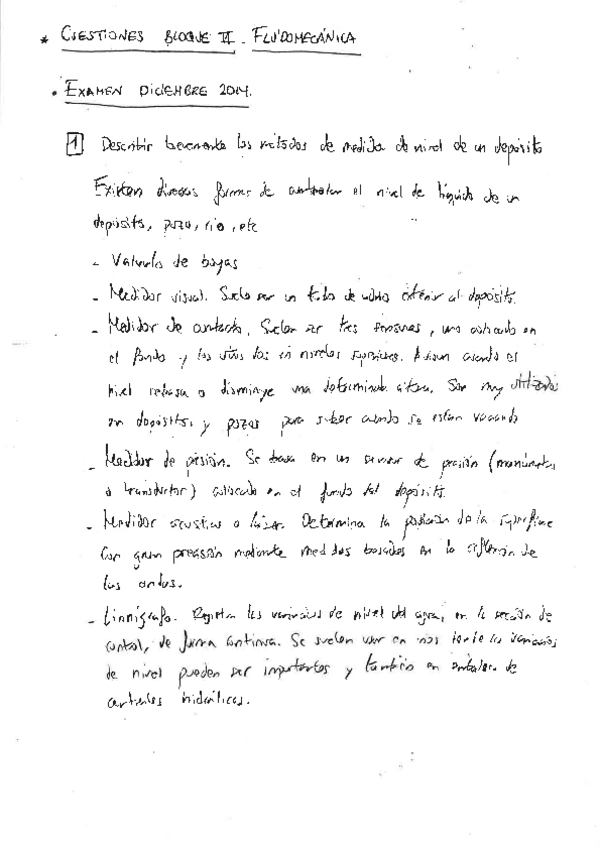 * CUESTIONES BLOQUE II - FLUIDOMECÁNICA
• EXAMEN DICIEMBRE 2014.
1 Describir brevemente los métodos de medida de nivel de un depósito
Existen diversas formas de controlar el nivel de líquido de un
depósito, pozo, río, etc
- Válvula de boyas
- Medidor visual. Suele ser un tubo de vidrio exterior al depósito.
- Medidor de contacto. Suelen ser tres sensores, uno colocado en
el fondo y los otros dos en niveles superiores. Avisan cuando el
nivel rebasa o disminuye una determinada altura. Son muy utilizados
en depósitos y pozos para saber cuándo se están vaciando
- Medidor de presión. Se basa en un sensor de presión (manómetro
o transductor) colocado en el fondo del depósito.
- Medidor acústico o láser. Determina la posición de la superficie
con gran precisión mediante medidas basadas en la reflexión de
las ondas.
- Limnígrafo. Registra las variaciones de nivel del agua, en la sección de
control, de forma continua. Se suelen usar en ríos las variaciones
de nivel pueden ser importantes y también en embalses de
centrales hidráulicas.